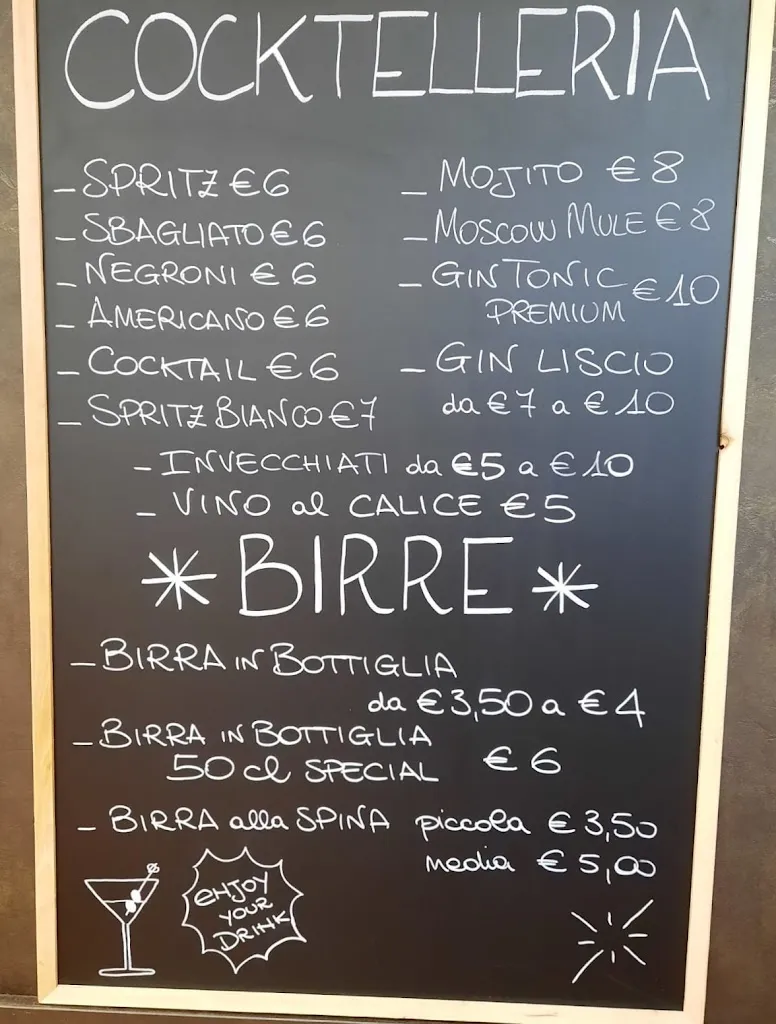 COCKTELLERIA
- SPRITZ € 6
- SBAGLIATO € 6
- NEGRONI € 6
- AMERICANO € 6
- COCKTAIL € 6
- SPRITZ BIANCO € 7
- MOJITO € 8
- MOSCOW MULE € 8
- GIN TONIC € 10
PREMIUM
- GIN LISCIO
da € 7 a € 10
- INVECCHIATI da €5 a € 10
- VINO al CALICE € 5
* BIRRE *
- BIRRA IN BOTTIGLIA
da € 3,50 a € 4
- BIRRA IN BOTTIGLIA
50 cl SPECIAL € 6
- BIRRA alla SPINA piccola € 3,50
media € 5,00
ENJOY
YOUR
DRINK